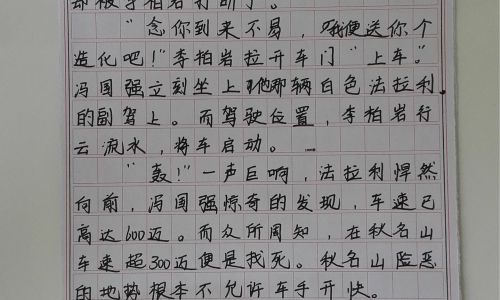 却被李柏岩打断了。
“念你到来不易，我便送你个
造化吧！”李柏岩拉开车门“上车。”
冯国强立刻坐上了他那辆白色法拉利
的副驾上。而驾驶位置，李柏岩行
云流水，将车启动。
“轰！”一声巨响，法拉利悍然
向前，冯国强惊奇的发现，车速已
高达600迈。而众所周知，在秋名山
车速超300迈便是找死。秋名山险恶
的地势根本不允许车手开快。